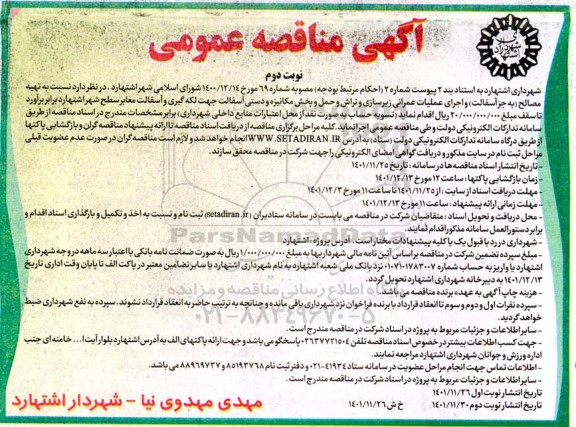 آگهی مناقصه عمومی
نوبت دوم
شهرداری اشتهارد به استناد بند ۲ پیوست شماره ۲ (احکام مرتبط بودجه) مصوبه شماره ۶۹ مورخ ۱۴۰۰/۱۲/۱۴ شورای اسلامی شهر اشتهارد ، در نظر دارد نسبت به تهیه
مصالح (به جز آسفالت) و اجرای عملیات عمرانی زیرسازی و تراش و حمل و پخش مکانیزه و دستی آسفالت جهت لکه گیری و آسفالت معابر سطح شهر اشتهارد برابر برآورد
تا سقف مبلغ ۲۰/۰۰۰/۰۰۰/۰۰۰ ریال اقدام نماید، (تسویه حساب به صورت نقد از محل اعتبارات منابع داخلی شهرداری) برابر مشخصات مندرج در اسناد مناقصه از طریق
سامانه تدارکات الکترونیکی دولت و طی مناقصه عمومی اجرا نماید. کلیه مراحل برگزاری مناقصه از دریافت اسناد مناقصه تا ارائه پیشنهاد مناقصه گران و بازگشایی پاکتها
از طریق درگاه سامانه تدارکات الکترونیکی دولت (ستاد) به آدرس WWW.SETADIRAN.IR انجام خواهد شد و لازم است مناقصه گران در صورت عدم عضویت قبلی
مراحل ثبت نام در سایت مذکور و دریافت گواهی امضای الکترونیکی را جهت شرکت در مناقصه محقق سازند.
- تاریخ انتشار اسناد مناقصه ها در سامانه : تاریخ ۱۴۰۱/۱۱/۲۵
- زمان بازگشایی پاکتها : ساعت ۱۲ مورخ ۱۴۰۱/۱۲/۱۳
- مهلت دریافت اسناد از سایت : از ۱۴۰۱/۱۱/۲۵ تا ساعت ۱۱ مورخ ۱۴۰۱/۱۲/۲
مهلت زمانی ارائه پیشنهاد : ساعت ۱۱ مورخ ۱۴۰۱/۱۲/۱۳
- محل دریافت و تحویل اسناد : متقاضیان شرکت در مناقصه می بایست در سامانه ستاد ایران (setadiran.ir) ثبت نام و نسبت به اخذ و تکمیل و بارگذاری اسناد اقدام و
برابر دستورالعمل سامانه مذکور اقدام نمایند.
- شهرداری در رد یا قبول یک یا کلیه پیشنهادات مختار است. آدرس پروژه : اشتهارد
- مبلغ سپرده تضمین شرکت در مناقصه بر اساس آئین نامه مالی شهرداریها به مبلغ ۱/۰۰۰/۰۰۰/۰۰۰ ریال به صورت ضمانت نامه بانکی با اعتبار سه ماهه در وجه شهرداری
اشتهارد یا واریز به حساب شماره ۰۱۰۷۱۰۱۷۸۳۰۰۷ نزد بانک ملی شعبه اشتهارد به نام شهرداری اشتهارد یا سایر تضامین معتبر در پاکت الف تا پایان وقت اداری تاریخ
۱۴۰۱/۱۲/۱۳ به دبیرخانه شهرداری اشتهارد تحویل گردد.
- هزینه چاپ آگهی به عهده برنده مناقصه می باشد.
- سپرده نفرات اول و دوم و سوم تا انعقاد قرارداد با برنده فراخوان نزد شهرداری باقی مانده و چنانچه به ترتیب حاضر به انعقاد قرارداد نشوند. سپرده به نفع شهرداری ضبط
خواهد گردید.
- سایر اطلاعات و جزئیات مربوط به پروژه در اسناد شرکت در مناقصه مندرج است.
- جهت کسب اطلاعات بیشتر در خصوص اسناد مناقصه تلفن ۰۲۶۳۷۷۲۱۵۰۴ پاسخگو می باشد و جهت ارائه پاکتهای الف به آدرس اشتهارد بلوار آیت ا... خامنه ای جنب
اداره ورزش و جوانان شهرداری اشتهارد مراجعه نمایند.
- اطلاعات تماس جهت انجام مراحل عضویت در سامانه ستاد ۴۱۹۳۴-۰۲۱ و دفتر ثبت نام ۸۵۱۹۳۷۶۸ و ۸۸۹۶۹۷۳۷ می باشد.
- سایر اطلاعات و جزئیات مربوط به پروژه در اسناد شرکت در مناقصه مندرج است.
تاریخ انتشار نوبت اول ۱۴۰۱/۱۱/۲۶
تاریخ انتشار نوبت دوم ۱۴۰۱/۱۱/۳۰ خ ش ۱۴۰۱/۱۱/۲۶
مهدی مهدوی نیا - شهردار اشتهارد
ParsNamadData
۰۲۱-۸۸۳۴۹۶۷۰-۵